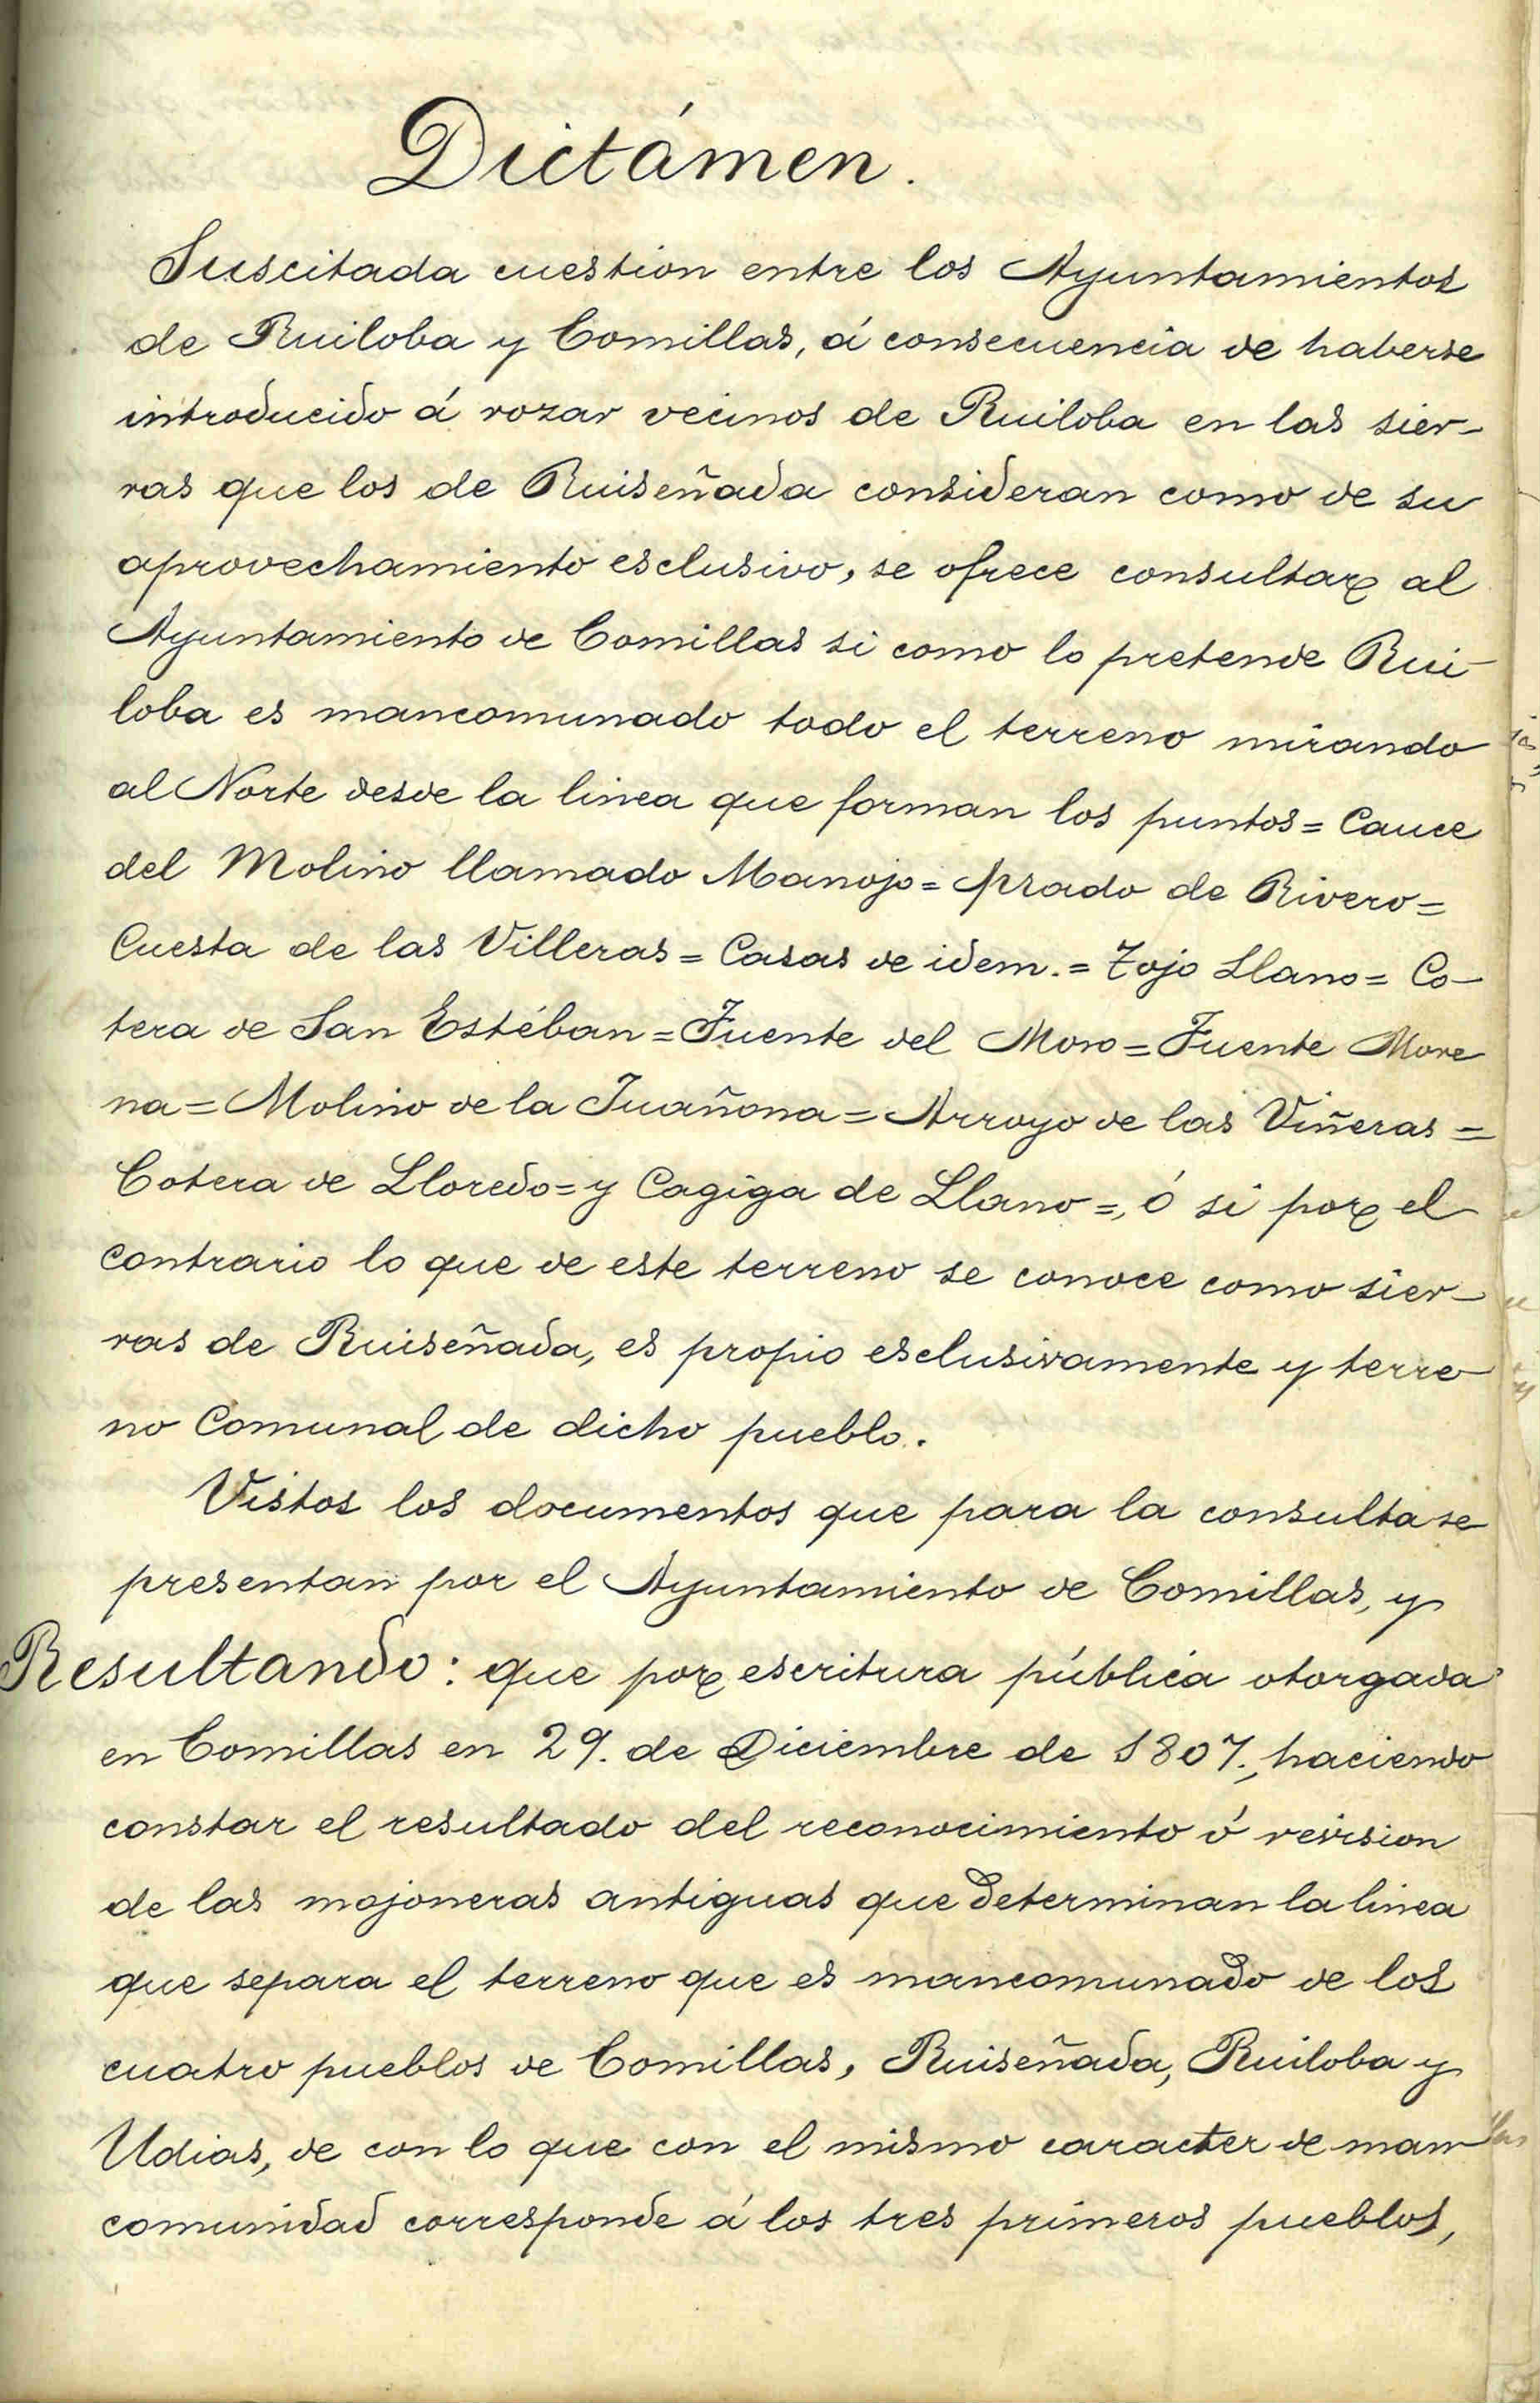 Dictámen.
Suscitada cuestion entre los Ayuntamientos
de Ruiloba y Comillas, á consecuencia de haberse
introducido á rozar vecinos de Ruiloba en las sier-
ras que los de Ruiseñada consideran como de su
aprovechamiento esclusivo, se ofrece consultar al
Ayuntamiento de Comillas si como lo pretende Rui-
loba es mancomunado todo el terreno mirando
al Norte desde la linea que forman los puntos = Cauce
del Molino llamado Manojo = prado de Rivero =
Cuesta de las Villeras = Casas de idem. = Tojo Llano = Co-
tera de San Estéban = Fuente del Moro = Fuente More
na = Molino de la Juañona = Arroyo de las Viñeras =
Cotera de Lloredo = y Cagiga de Llano =, ó si por el
contrario lo que de este terreno se conoce como sier-
ras de Ruiseñada, es propio esclusivamente y terre
no Comunal de dicho pueblo.
Vistos los documentos que para la consulta se
presentan por el Ayuntamiento de Comillas, y
Resultando: que por escritura pública otorgada
en Comillas en 29. de Diciembre de 1807., haciendo
constar el resultado del reconocimiento ó revision
de las mojoneras antiguas que determinan la linea
que separa el terreno que es mancomunado de los
cuatro pueblos de Comillas, Ruiseñada, Ruiloba y
Udias, de con lo que con el mismo caracter de man
comunidad corresponde á los tres primeros pueblos,